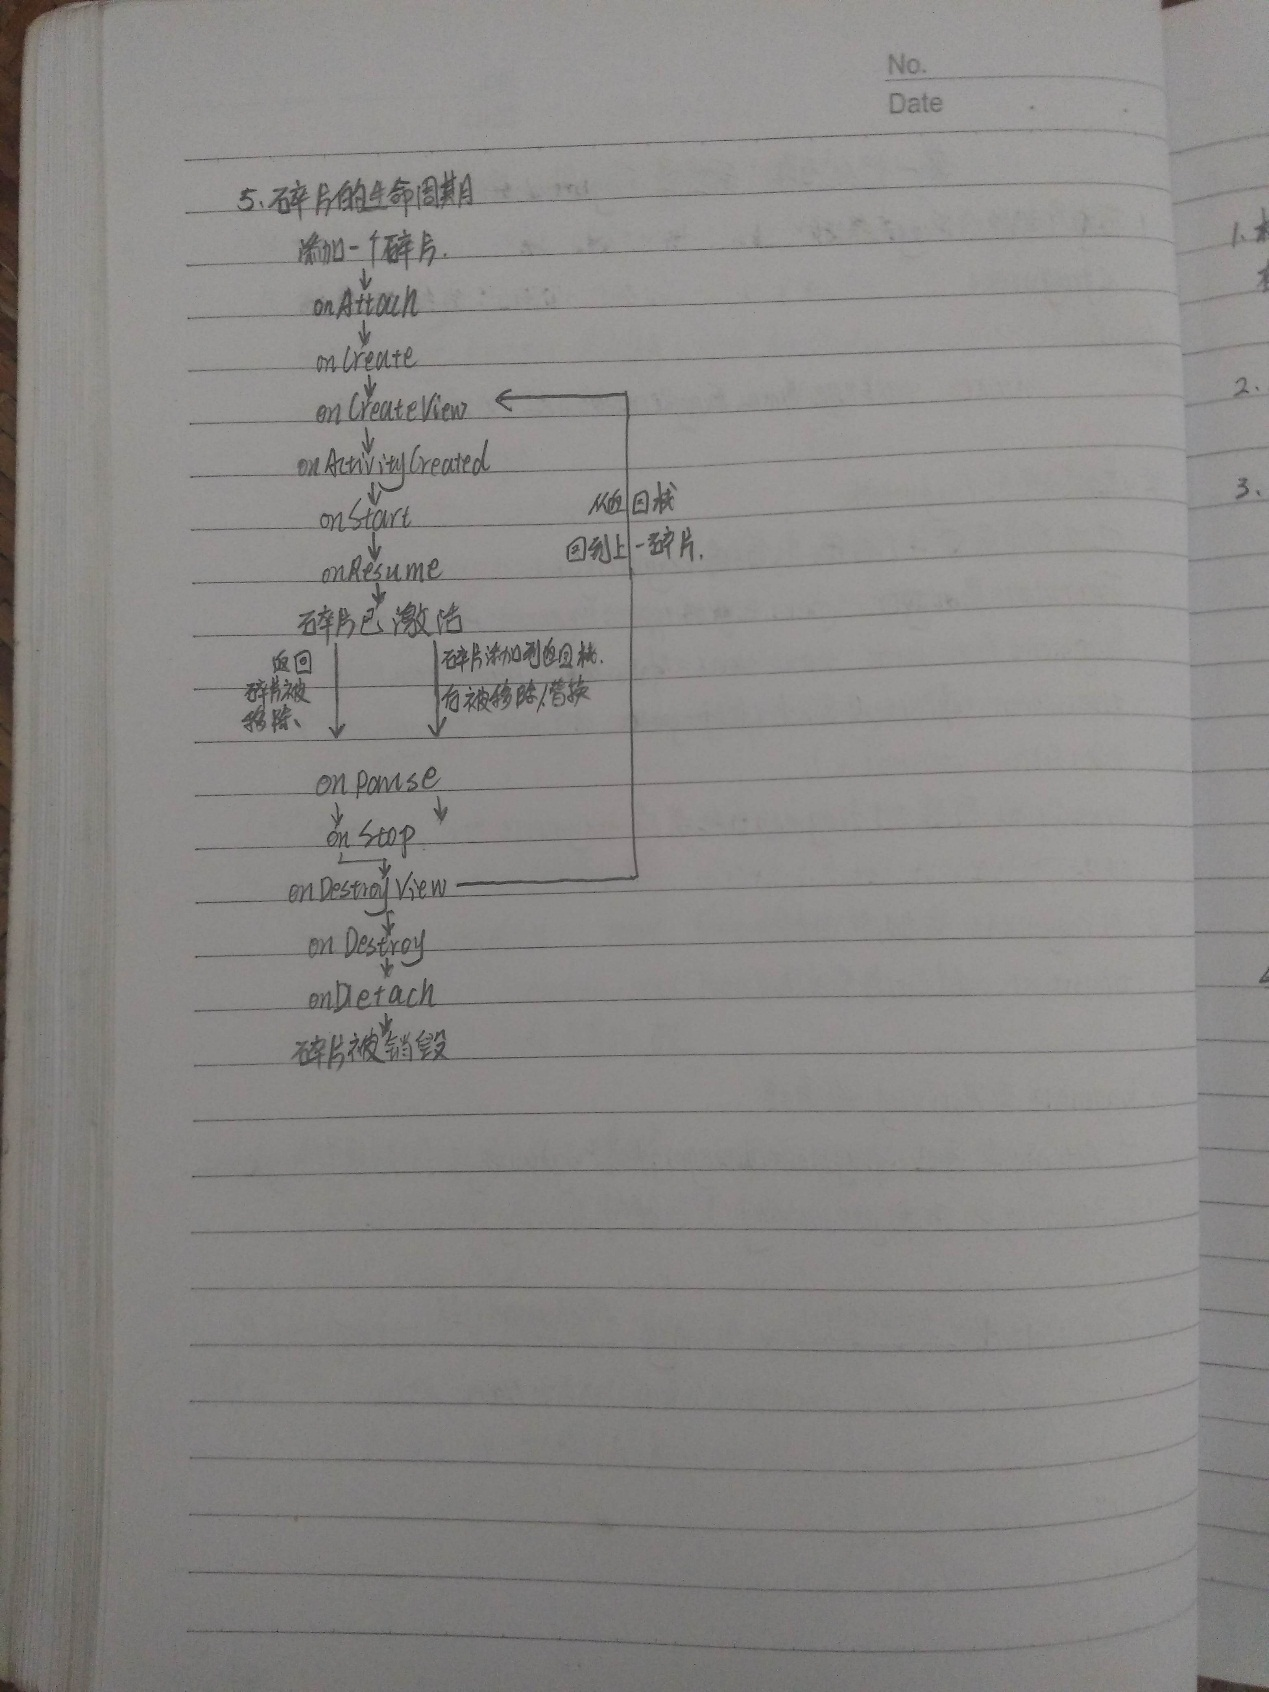 No.
Date
5.碎片的生命周期
添加一个碎片.
onAttach
onCreate
onCreateView
onActivityCreated
onStart
从返回栈
回到上一碎片.
onResume
碎片已激活
返回
碎片被
移除、
碎片添加到返回栈.
后被移除/替换
onPause
onStop
onDestroyView
onDestroy
onDetach
碎片被销毁
1.
2.
3.